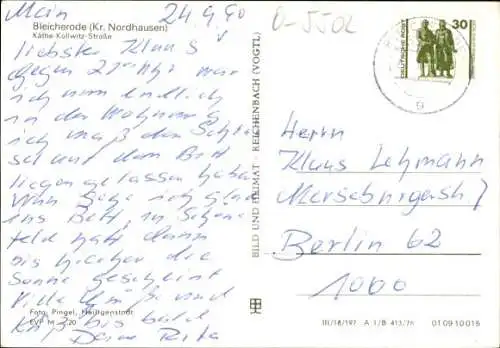 Mein 24.9.90
Bleicherode (Kr. Nordhausen)
Käthe-Kollwitz-Straße
liebster Klaus
gegen 21 Uhr war
ich nun endlich
in der Wohnung
ich muß den
und dem Bett
liegen gelassen haben
ich
ins Bett, in
feld hat
bis hierher die
Sonne gescheint
Viele und
Kuß bis bald
Deine Rita
Foto: Pingel, Heiligenstadt
EVP M 0,20
BILD UND HEIMAT · REICHENBACH (VOGTL)
O-5502
DEUTSCHE POST
30
Herrn
Klaus Lehmann
Merseburgerstr 7
Berlin 62
1000
III/18/197 A 1/B 413/76 01 09 10 015